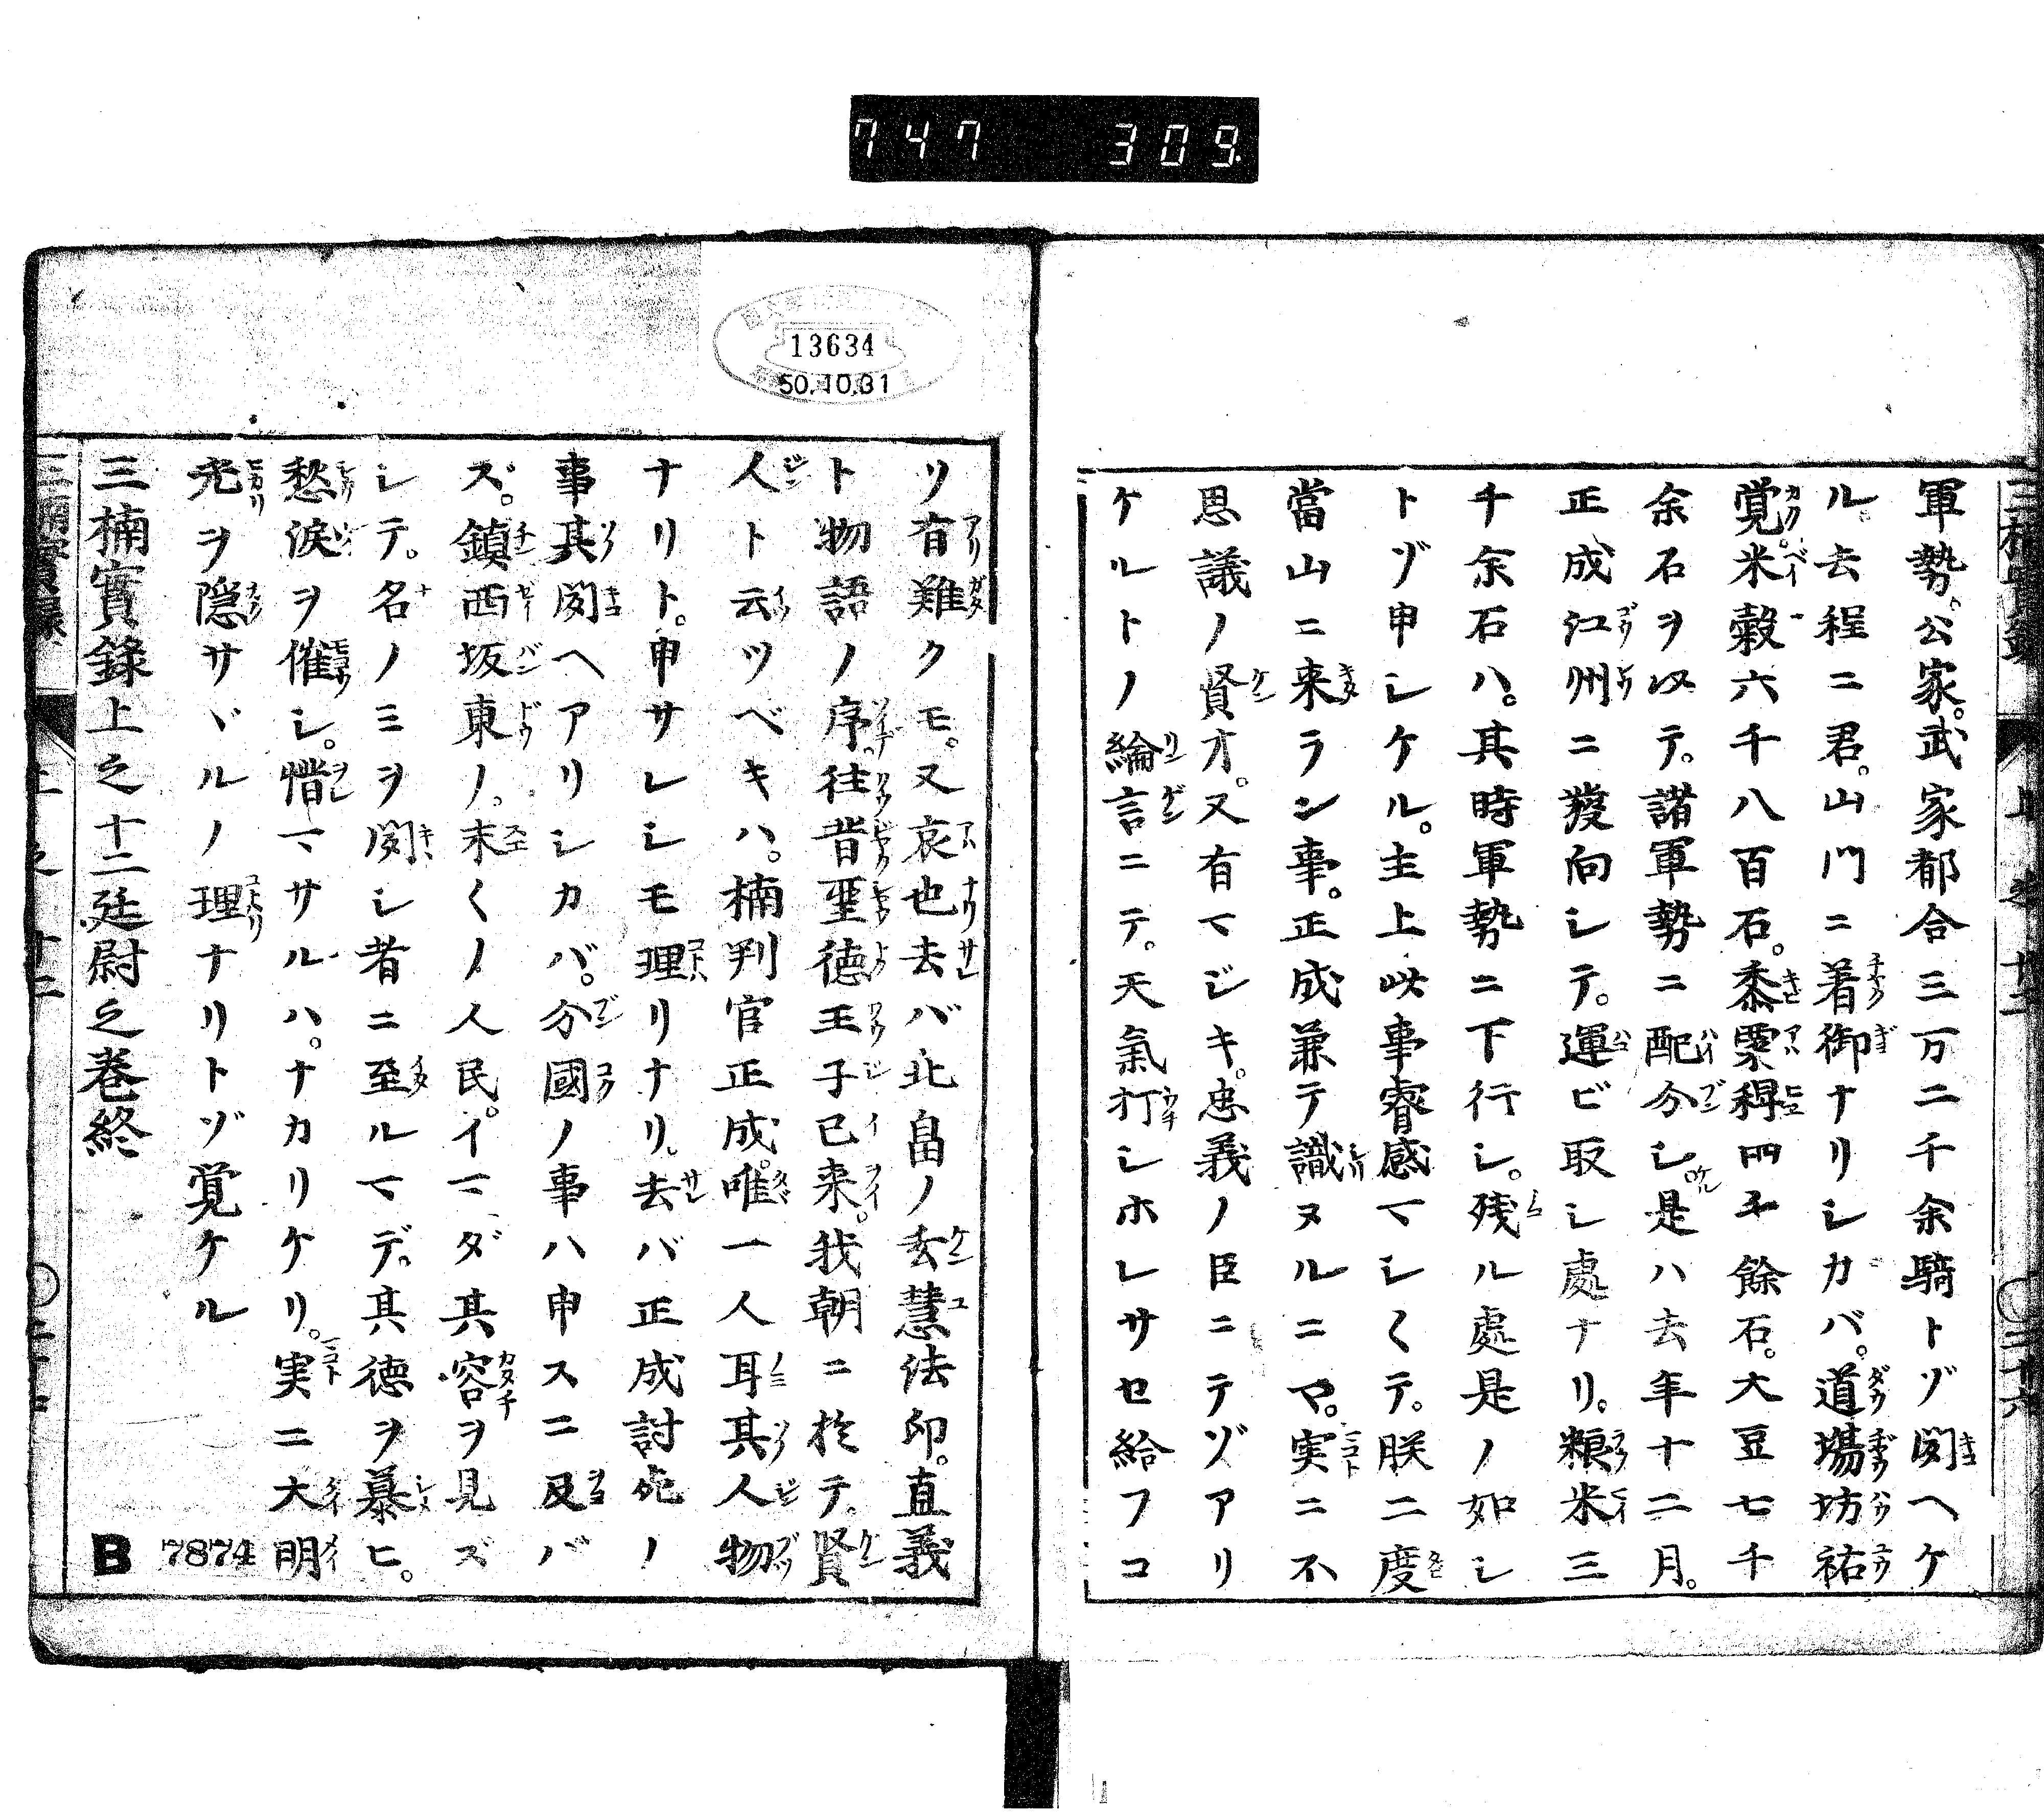 747 309
軍勢。公家。武家都合三万二千余騎トゾ聞ヘケ
ル。去程ニ君。山門ニ着御ナリシカバ。道場坊祐
覚。米穀六千八百石。黍粟稗四千餘石。大豆七千
余石ヲ以テ。諸軍勢ニ配分シ是ハ去年十二月。
正成江州ニ發向シテ。運ビ取シ處ナリ。粮米三
千余石ハ。其時軍勢ニ下行シ。残ル處是ノ如シ
トゾ申シケル。主上此事睿感マシ〱テ。朕二度
當山ニ来ラン事。正成兼テ識ヌルニヤ。実ニ不
思議ノ賢才。又有マジキ。忠義ノ臣ニテゾアリ
ケルトノ綸言ニテ。天氣打シホレサセ給フコ
13634
50.10.31
ソ有難クモ。又哀也去バ北畠ノ玄慧法印。直義
ト物語ノ序。往昔聖徳王子已来。我朝ニ於テ。賢
人ト云ツベキハ。楠判官正成。唯一人耳其人物
ナリト。申サレシモ理リナリ。去バ正成討死ノ
事其聞ヘアリシカバ。分國ノ事ハ申スニ及バ
ズ。鎮西坂東ノ。末〱ノ人民。イマダ其容ヲ見ズ
シテ。名ノミヲ聞シ者ニ至ルマデ。其徳ヲ慕ヒ。
愁涙ヲ催シ。惜マサルハ。ナカリケリ。実ニ大明
光ヲ隠サヾルノ理ナリトゾ覚ケル
7874
三楠實錄上之十二廷尉之巻終
B